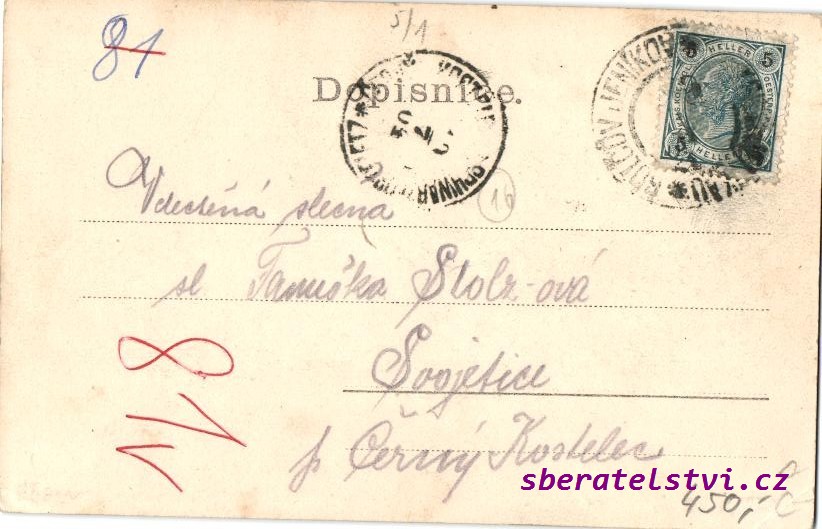 81
5/1
Dopisnice.
5 HELLER 5
Vdečená slečna
16
sl Fanuška Stolz-ová
Svojetice
p Černý Kostelec
1/1 8
sberatelstvi.cz
450,- Č